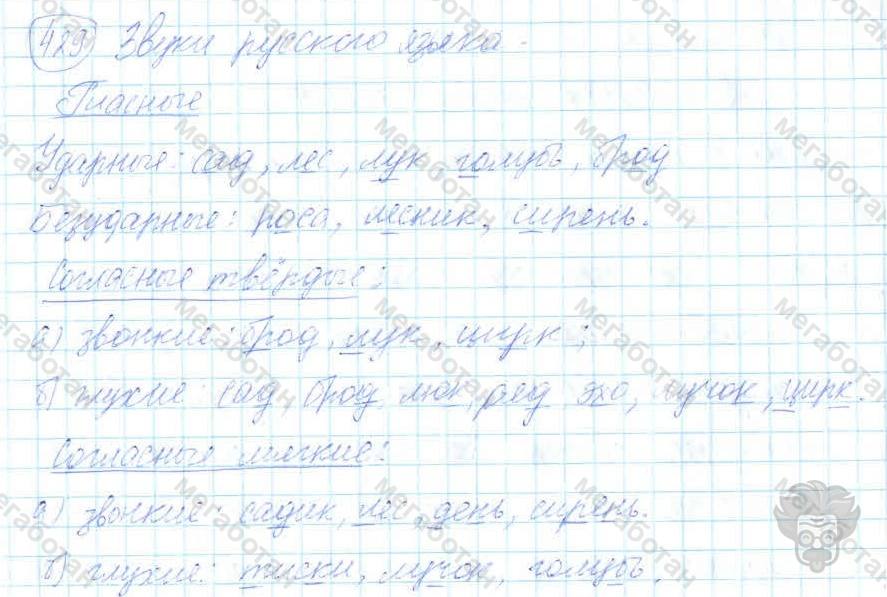 429 Звуки русского языка.
Гласные
Ударные: сад, лес, лук, голубь, брод
Безударные: роса, лесник, сирень.
Согласные твёрдые:
а) звонкие: брод, лук, цирк;
б) глухие: сад, брод, люк, ряд, эхо, лучок, цирк.
Согласные мягкие:
а) звонкие: садик, лес, день, сирень.
б) глухие: тиски, лучок, голубь.
Мегаботан